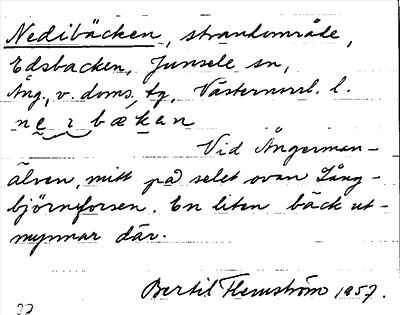 Nedibäcken, strandområde,
Edsbacken, Junsele sn,
Ång., v. doms. tg, Västernorrl. l.
ne i bækan
Vid Ångerman-
älven, mitt på selet ovan Lång-
björnforsen. En liten bäck ut-
mynnar där.
Bertil Flemström 1957.
37